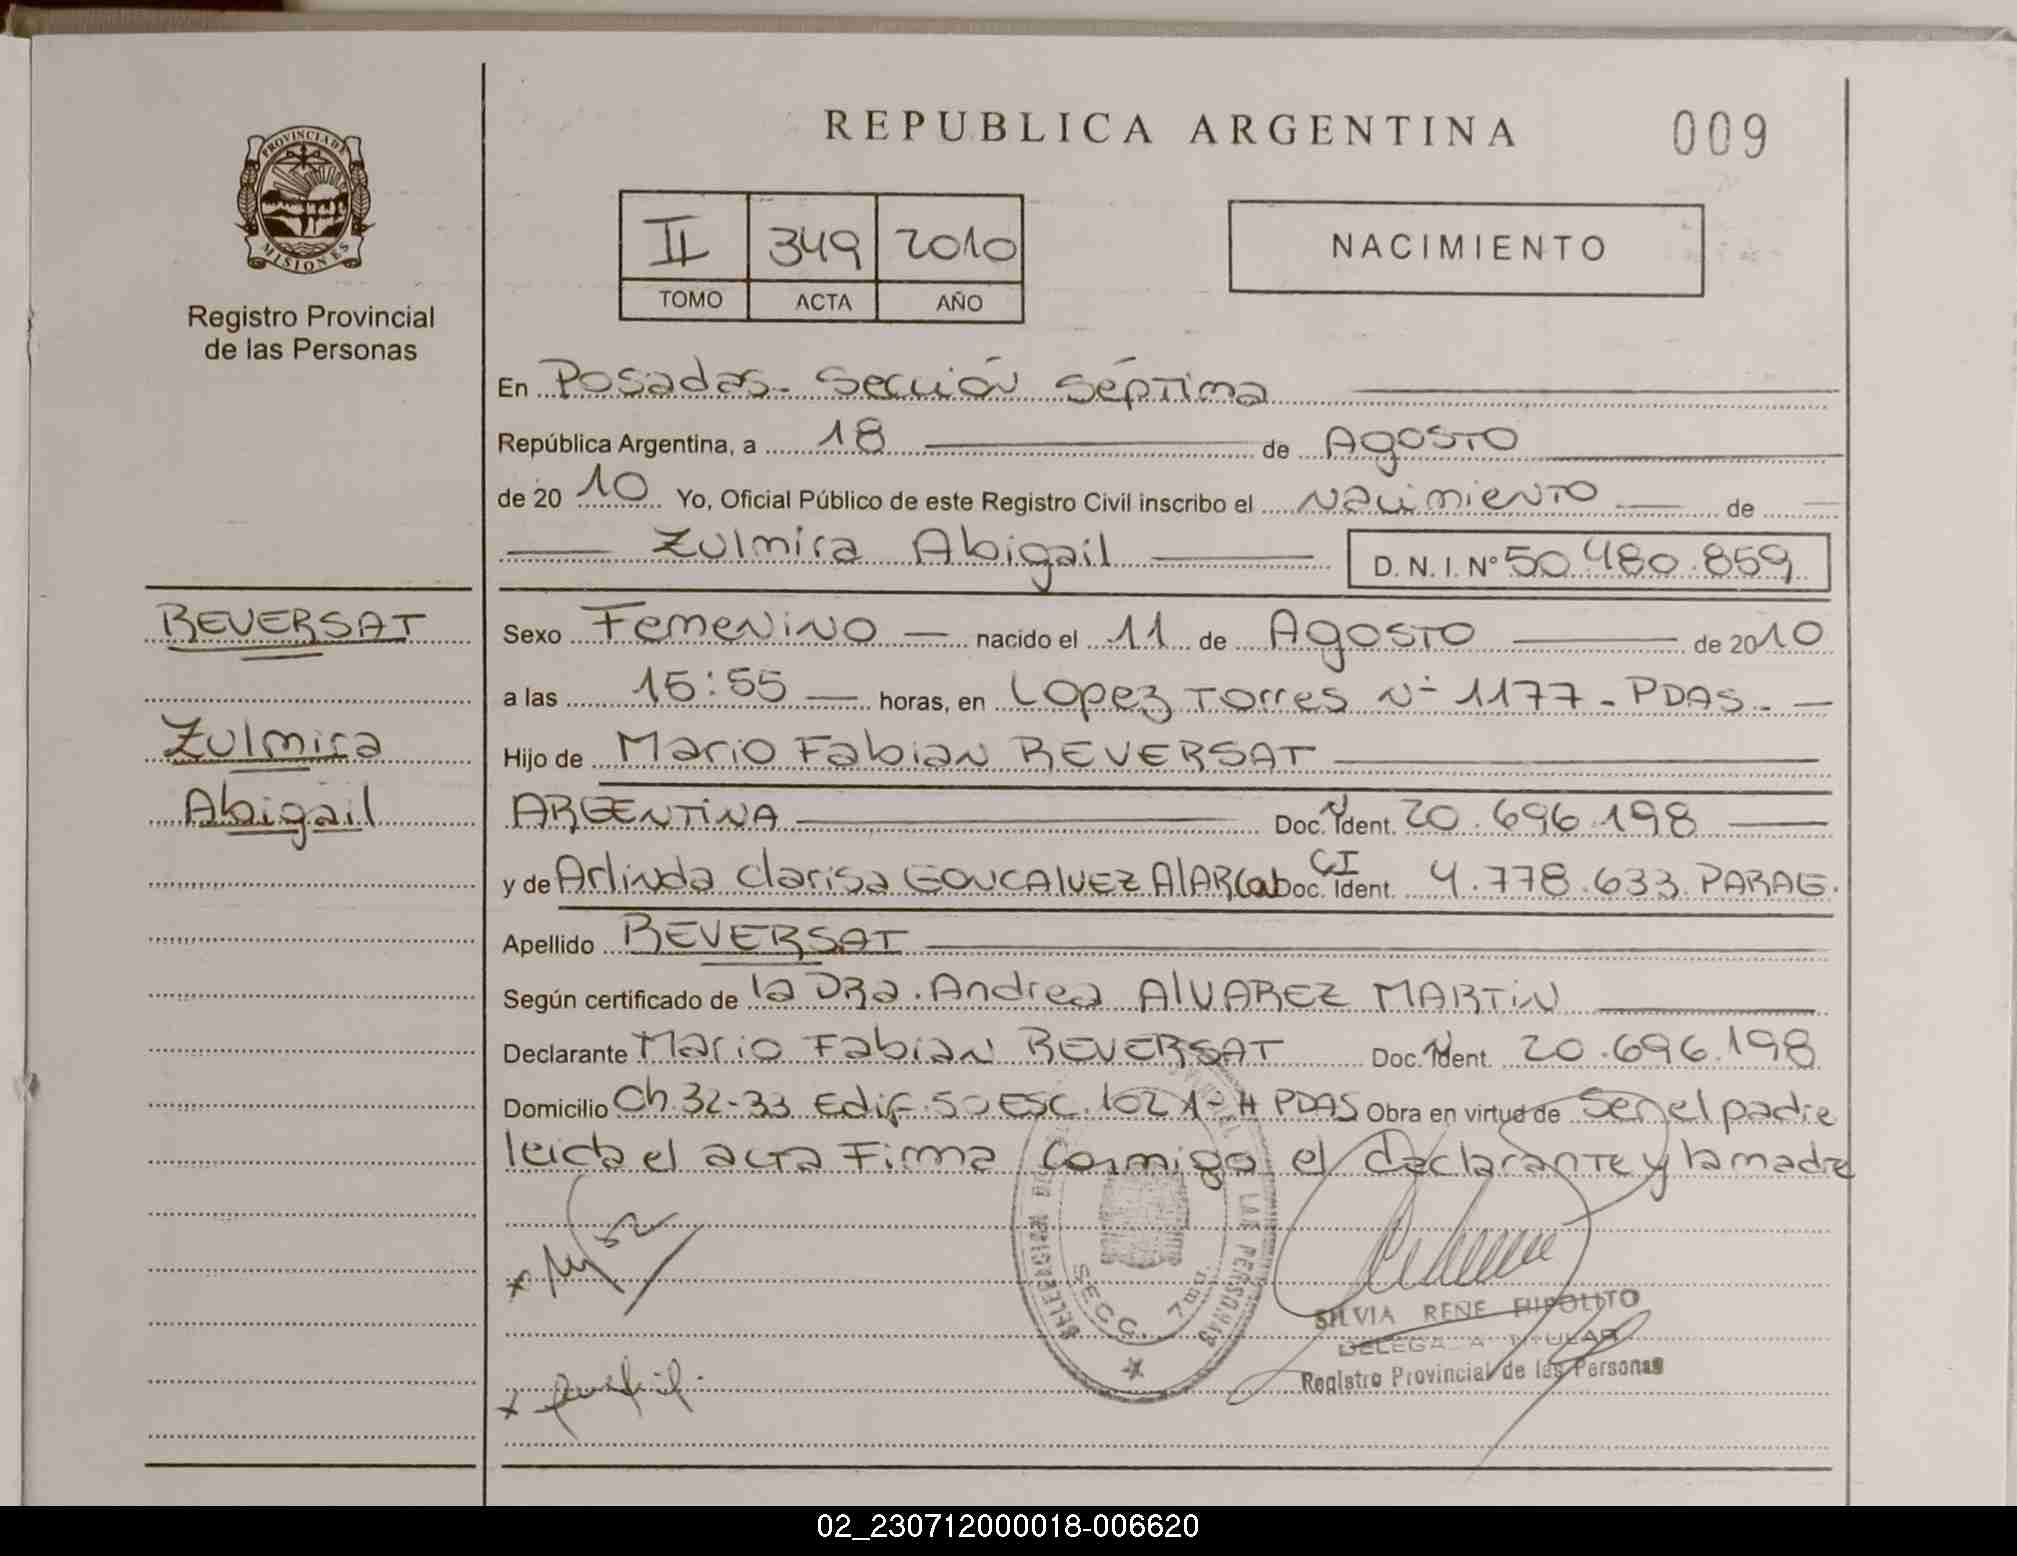 REPUBLICA ARGENTINA
009
PROVINCIA DE
MISIONES
Registro Provincial
de las Personas
II 349 2010
TOMO ACTA AÑO
NACIMIENTO
En Posadas - Sección Séptima
República Argentina, a 18 de Agosto
de 2010 Yo, Oficial Público de este Registro Civil inscribo el Nacimiento de
Zulmira Abigail D.N.I. Nº 50.480.859
REVERSAT
Zulmira
Abigail
Sexo Femenino nacido el 11 de Agosto de 2010
a las 15:55 horas, en Lopez Torres Nº 1177 - PDAS.
Hijo de Mario Fabian REVERSAT
ARGENTINA Doc. Ident. 20.696.198
y de Arlinda Clarisa GONCALVEZ AlARCON Doc. CI Ident. 4.778.633 PARAG.
Apellido REVERSAT
Según certificado de la DRa. Andrea AlVAREZ MARTiN
Declarante Mario Fabian REVERSAT Doc. Ident. 20.696.198
Domicilio Ch. 32-33 Edif. 50 ESC. 102 1º H PDAS Obra en virtud de Ser el padre
leida el acta Firma Conmigo el declarante y la madre
SECC. 7
LAS PERSONAS
SILVIA RENE HIPOLITO
DELEGADA TITULAR
Registro Provincial de las Personas
02_230712000018-006620